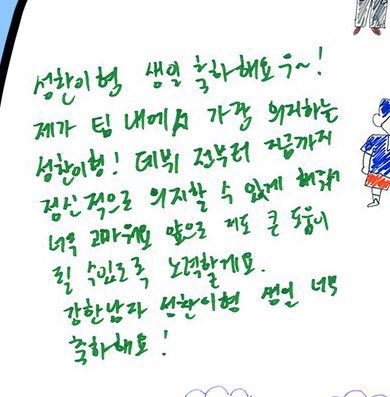 성찬이형 생일 축하해요우~!
제가 팀 내에서 가장 의지하는
성찬이형! 데뷔 전부터 지금까지
정신적으로 의지할 수 있게 해줘서
너무 고마워요 앞으로 저도 큰 도움이
될 수있도록 노력할게요.
강한남자 성찬이형 생일 너무
축하해요!